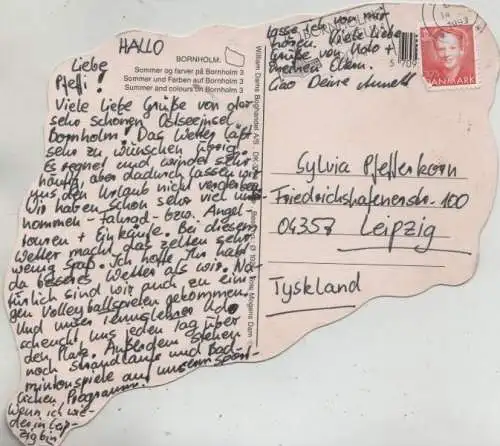 HALLO
Liebe
Pfeffi!
Viele Liebe Grüße von der
sehr schönen Ostseeinsel
Bornholm. Das Wetter läßt
sehr zu wünschen übrig.
Es regnet und windet sehr
häufig, aber dadurch lassen wir
uns den Urlaub nicht verderben.
Wir haben schon sehr viel unter-
nommen - Fahrad- bzw. Angel-
touren + Einkäufe. Bei diesem
Wetter macht das zelten sehr
wenig spaß. Ich hoffe Ihr habt
da besseres Wetter als wir. Na-
türlich sind wir auch zu eini-
gen Volleyballspielen gekommen.
Und unser Udo
scheucht uns jeden Tag über
den Platz. Außerdem stehen
noch Strandlauf und Bad-
mintonspiele auf unserm spor-
lichen Programm.
Wenn ich wie-
der in Leip-
zig bin
lasse ich von mir
hören. Viele Liebe
Grüße von Udo +
meinen Eltern.
Ciao Deine Annett
BORNHOLM.
Sommer og farver på Bornholm 3
Sommer und Farben auf Bornholm 3
Summer and colours on Bornholm 3
William Dams Boghandel A/S
DANMARK
Sylvia Pfefferkorn
Friedrichshafenerstr. 100
04357 Leipzig
Tyskland